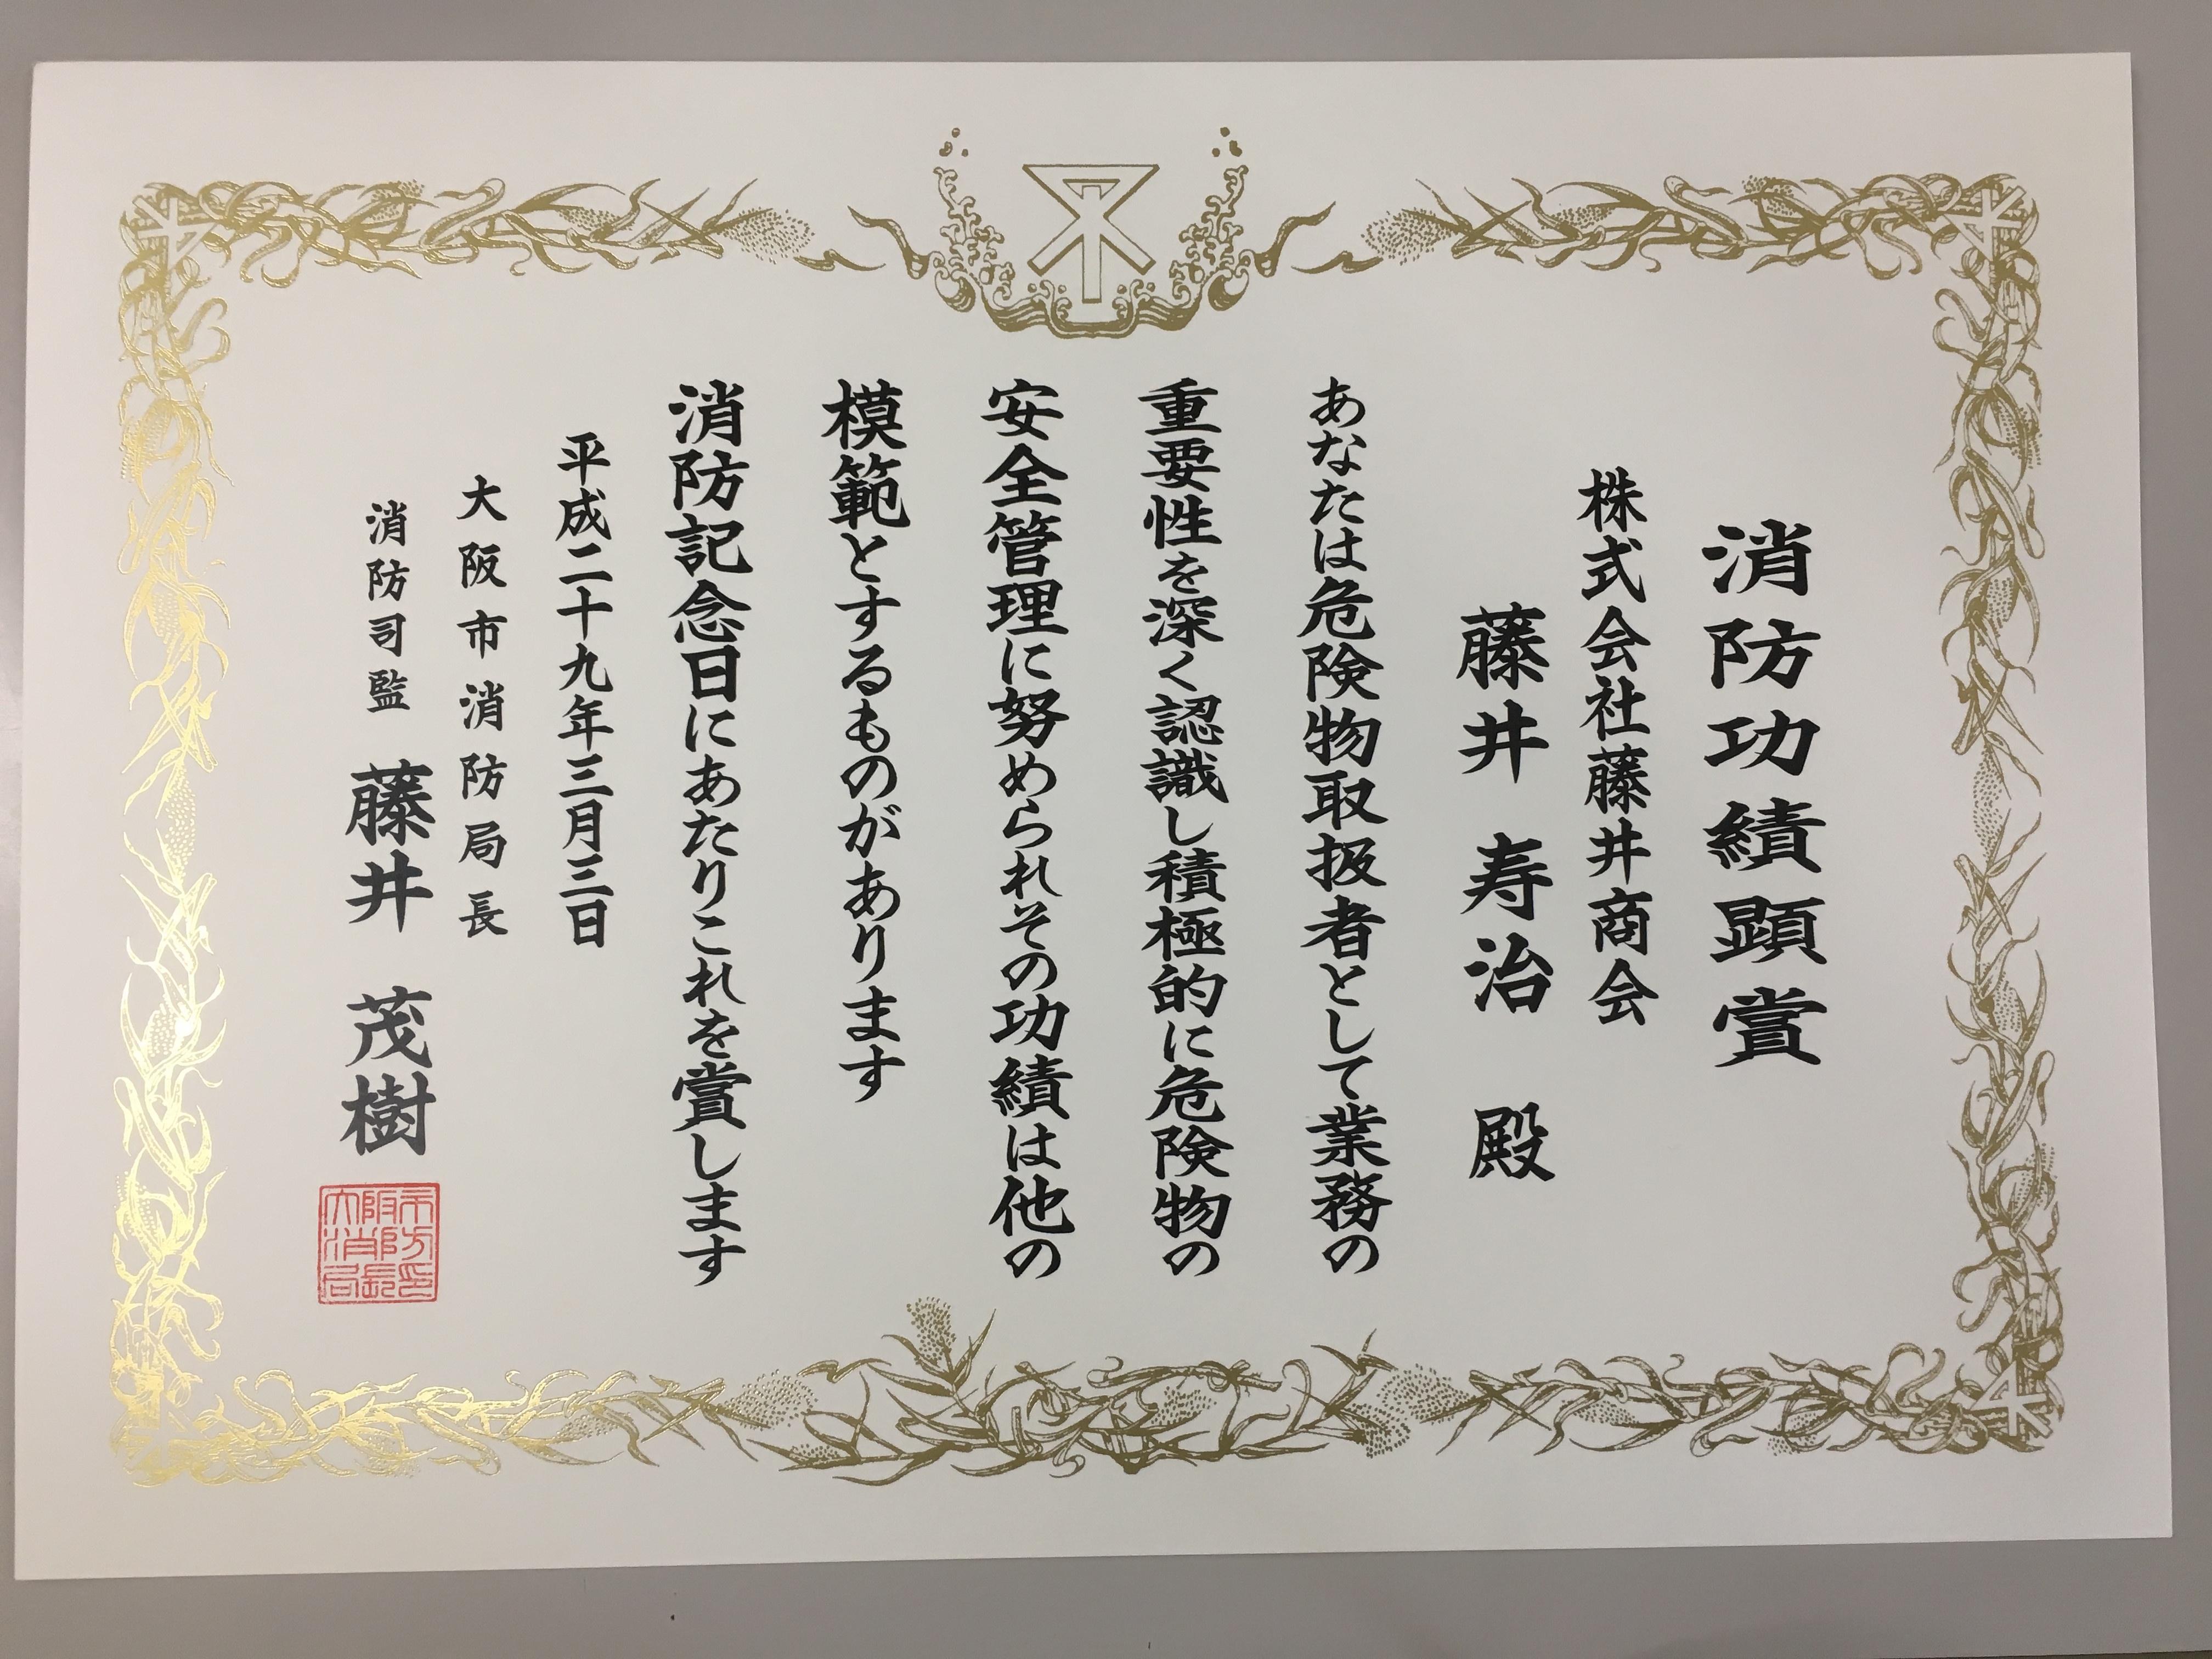 消防功績顕賞
株式会社藤井商会
藤井寿治殿
あなたは危険物取扱者として業務の
重要性を深く認識し積極的に危険物の
安全管理に努められその功績は他の
模範とするものがあります
消防記念日にあたりこれを賞します
平成二十九年三月三日
大阪市消防局長
消防司監 藤井茂樹
大阪市消防局長印